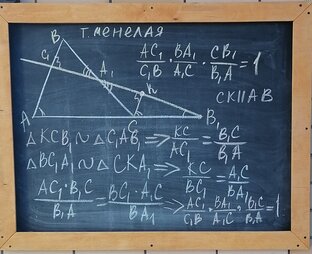 Т. МЕНЕЛАЯ
AC₁/C₁B · BA₁/A₁C · CB₁/B₁A = 1
CK II AB
B
C₁
A₁
K
A
C
B₁
△KCB₁ ~ △C₁AB₁ => KC/AC₁ = B₁C/B₁A
△BC₁A₁ ~ △CKA₁ => KC/BC₁ = A₁C/BA₁
AC₁·B₁C/B₁A = BC₁·A₁C/BA₁ => AC₁/C₁B · BA₁/A₁C · B₁C/B₁A = 1